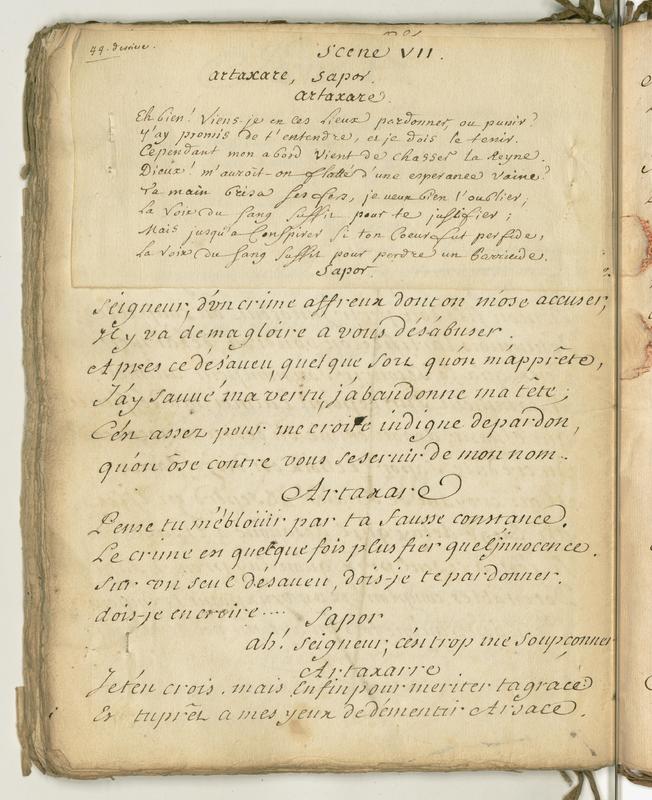 44. derniere.
Scene VII.
artaxare, Sapor.
artaxare.
Eh bien! Viens-je en ces lieux pardonner, ou punir?
J'ay promis de t'entendre, et je dois le tenir.
Cependant mon abord vient de chasser la Reyne.
Dieux! m'auroit-on flaté d'une esperance vaine?
Ta main brisa ses fers, je veux bien l'oublier;
La Voix du Sang Suffit pour te justifier;
Mais jusqu'a Conspirer Si ton Coeur fut perfide,
La Voix du Sang Suffit pour perdre un Parricide.
Sapor.
Seigneur, d'vn crime affreux dont on m'ose accuser,
Il y va de ma gloire a vous désabuser.
Apres ce desaveu, quelque sort qu'on m'apprête,
J'ay sauué ma vertu, j'abandonne ma tête;
C'en assez pour me croire indique de pardon,
qu'on ôse contre vous se seruir de mon nom.
Artaxare
Pense tu m'éblouir par ta fausse constance.
Le crime en quelque fois plus fier que l'jnnocence.
sur vn seul désaveu, dois-je te pardonner.
dois-je en croire....
Sapor
ah! seigneur, c'en trop me soupçonner
Artaxarre.
Je t'en crois. mais enfin pour meriter ta grace
Es tu prêt a mes yeux de démentir Arsace.